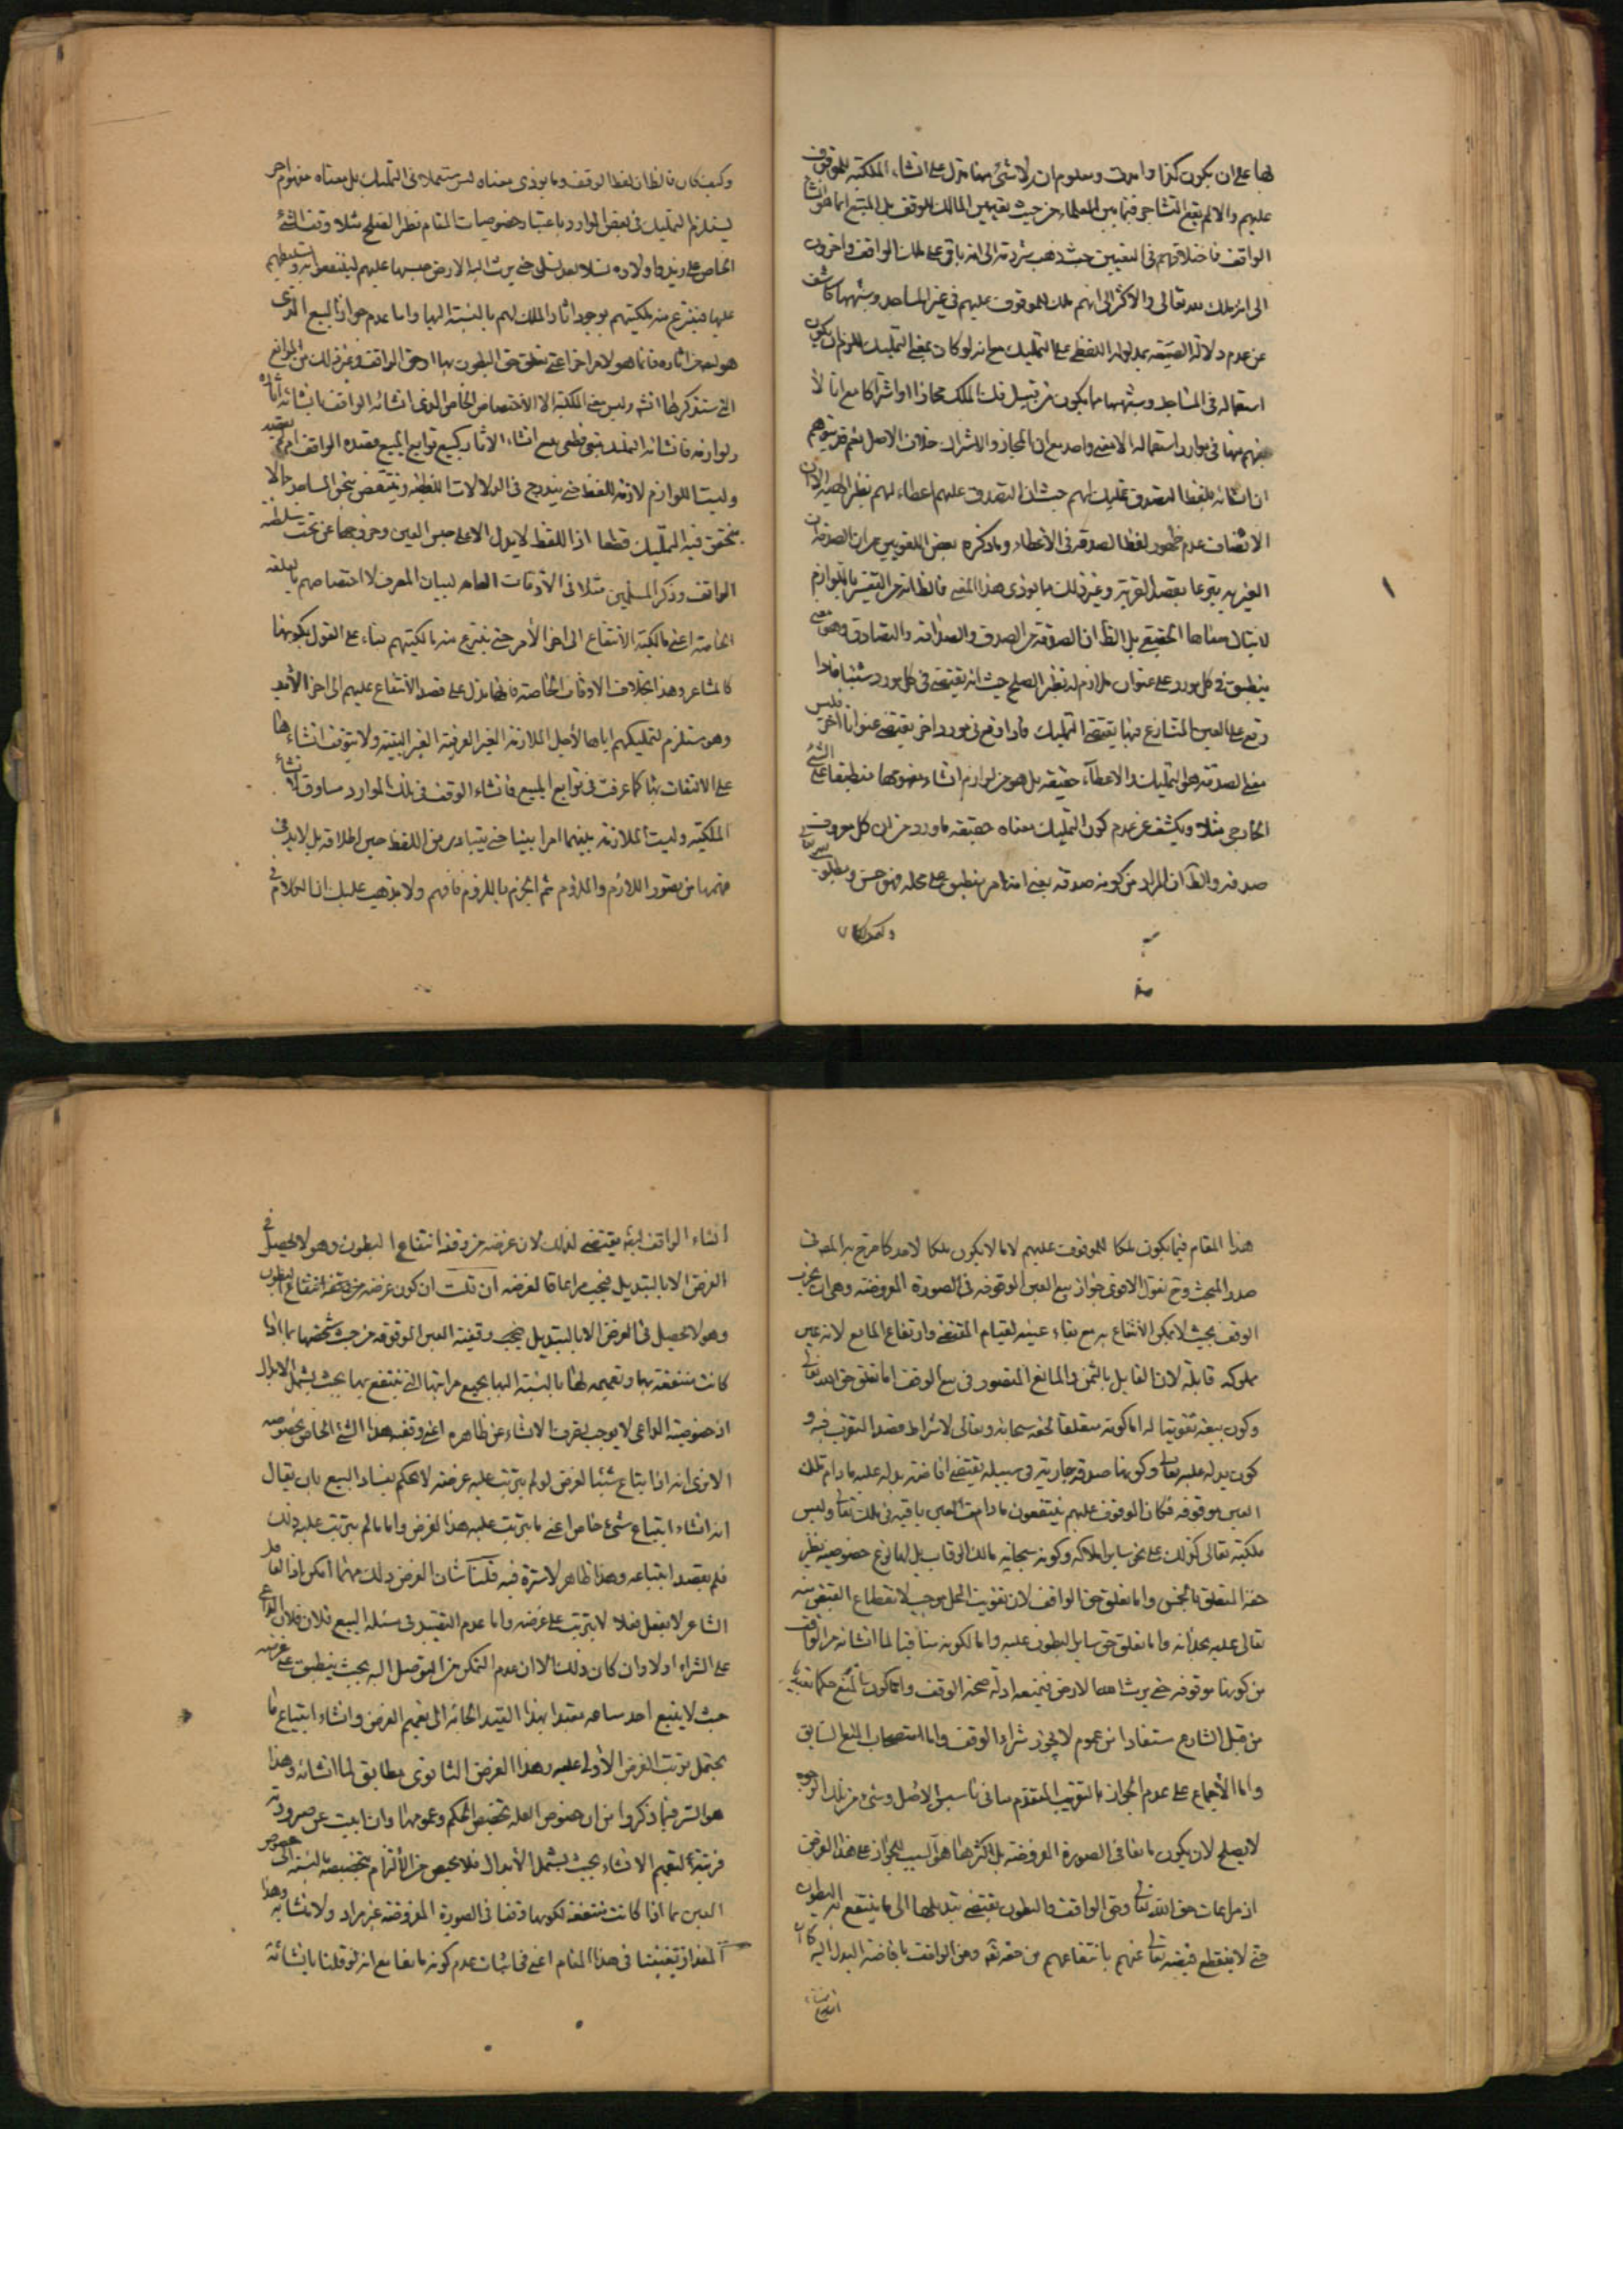 لها على ان يكون كذا وامثاله ومعلوم ان لا شئ منها تدل على انشاء الملكية للموقوف
عليهم والا لم يقع التشاجر فيما بين العلماء من حيث تعيين المالك للوقف بل المتبع انما هو انشاء
الواقف فاختلافهم في التعيين حيث ذهب شرذمة الى انه باق على ملك الواقف واخرون
الى انه ملك لله تعالى والاكثر الى انهم ملك للموقوف عليهم في غير المساجد وشبهها كاشف
عن عدم دلالة الصيغة بمدلوله اللفظى على التمليك مع انه لو كان بمعنى التمليك للزم ان يكون
استعماله في المساجد وشبهها مما يكون من قبيل فك الملك مجازا او اشتراكا مع انا لا
نفهم منها في موارد استعماله الا معنى واحد مع ان المجاز والاشتراك خلاف الاصل نعم قد يتوهم
ان انشائه بلفظ التصدق تمليك لهم حيث ان التصدق عليهم اعطاء لهم
الانصاف عدم ظهور لفظ الصدقة في الاعطاء وما ذكره بعض اللغويين من ان الصدقة
الغير به تبرعا بقصد القربة وغير ذلك مما يؤدى هذا المعنى فالظ انه من التفسير باللوازم
معناها الحقيقى بل الظ ان الصدقة من الصدق والصداقة والتصادق وهو معنى
ينطبق في كل مورد على عنوان ملازم له نظير الصلح حيث انه يقتضى في كل مورد شيئا فاذا
وقع على العين المتنازع فيها يقتضى التمليك واذا وقع في مورد اخر يقتضى عنوانا اخر فليس
معنى الصدقة هو التمليك والاعطاء حقيقة بل هو من لوازم انشاء مفهومها منطبقا على الشئ
الخارجى مثلا ويكشف عن عدم كون التمليك معناه حقيقة ما ورد من ان كل معروف
صدقة والظ ان المراد من كونه صدقة يعنى انه امر ينطبق على محله فهو حسن ومطلوب
وكيف كان فالظ ان لفظ الوقف وما يؤدى معناه ليس مستعملا في التمليك بل معناه مفهوم اخر
يستلزم التمليك في بعض الموارد باعتبار خصوصيات المقام نظير الصلح مثلا وقف الشئ
الخاص على زيد واولاده نسلا بعد نسل حتى يرث الله الارض حبسها عليهم لينتفعوا به
عليها فينتزع منه ملكيتهم بوجود اثار الملك لهم بالنسبة اليها واما عدم جواز البيع الذى
هو احد اثاره فانما هو لامر اخر اعنى تعلق حق البطون بها او حق الواقف وغير ذلك من الموانع
التى ستذكر انش وليس معنى الملكية الا الاختصاص الخاص الذى انشائه الواقف بانشائه اثاره
ولوازمه فانشائه التمليك تبعى قطعى مع انشاء الاثار كبيع توابع المبيع قصده الواقف ام لم يقصد
وليست اللوازم لازمة للفظ حتى يندرج في الدلالات اللفظية وينتقض بنحو المساجد حالا
يتحقق فيه التمليك قطعا اذ اللفظ لا يدل الا على حبس العين وخروجها عن تحت سلطنة
الواقف وذكر المسلمين مثلا في الاوقات العامة لبيان المصرف لا اختصاصهم بالعلقة
الخاصة اعنى مالكية الانتفاع الى اخر الامر حتى ينتزع منه مالكيتهم بناء على القول بكونها
كالمشاعر وهذا بخلاف الاوقاف الخاصة فانها تدل على قصد الانتفاع عليهم الى اخر الابد
وهو مستلزم لتمليكهم اياها لاجل الملازمة الغير العرفية الغير البينة ولا يتوقف انشاءها
على الالتفات بها كما عرفت في توابع المبيع فانشاء الوقف في تلك الموارد مساوق لانشاء
الملكية وليست الملازمة بينهما امرا بينا حتى يتبادر من اللفظ حين اطلاقه بل لا بد في
فهمها من تصور اللازم والملزوم ثم الجزم باللزوم فافهم ولا يذهب عليك ان الكلام في
هذا المقام فيما يكون ملكا للموقوف عليهم لا ما لا يكون ملكا لاحد كما صرح به المصنف في
صدر المبحث وح نقول الاقوى جواز بيع العين الموقوفة في الصورة المفروضة وهى ان يخرب
الوقف بحيث لا يمكن الانتفاع به مع بقاء عينه لقيام المقتضى وارتفاع المانع لانه عين
مملوكة قابلة لان القابل بالثمن والمانع المتصور في بيع الوقف اما تعلق حق الله تعالى
وكون بيعه تفويتا له اما كونه متعلقا لحقه سبحانه وتعالى لاشتراط قصد التقرب فيه و
كون بدله عليه تعالى وكونها صدقة جارية في سبيله يقتضى افاضة بدله عليه مادام تلك
العين موقوفة فكان الموقوف عليهم ينتفعون مادامت العين باقية في ملك تعالى وليس
ملكيته تعالى كذلك على نحو ساير املاكه وكونه سبحانه مالك الرقاب بل لها نوع خصوصية نظير
حقه المتعلق بالخمس واما تعلق حق الواقف لان تفويت المحل موجب لانقطاع الفيض منه
تعالى عليه بحذائه واما تعلق حق ساير البطون عليه واما لكونه منافيا لما انشائه من الوقف
من كونها موقوفة حتى يرث الله الارض فيمنعه ادلة صحة الوقف واما كون المنع حكما تعبديا
من قبل الشارع مستفادا من عموم لا يجوز شراء الوقف واما استصحاب المنع السابق
واما الاجماع على عدم الجواز بالتقريب المتقدم بيانه في تاسيس الاصل وشئ من تلك الوجوه
لا يصلح لان يكون مانعا في الصورة المفروضة بل اكثرها هو السبب للجواز على هذا الفرض
اذ مراعات حق الله تعالى وحق الواقف والبطون يقتضى تبديلها الى ما ينتفع به البطون
حتى لا ينقطع فيضه تعالى عنهم بانتفاعهم من حقه تعه وعن الواقف بافاضة البدل اليه كما ان
انشاء
انشاء الواقف ايضا يقتضى لذلك لان غرضه من وقفه انتفاع البطون وهو لا يحصل في
الفرض الا بالتبديل فيجب مراعاة لغرضه ان قلت ان كون غرضه من وقفه انتفاع البطون
وهو لا يحصل في الفرض الا بالتبديل يخص وقفية العين الموقوفة من حيث شخصها بما اذا
كانت منتفعة بها وتعميمه لها بالنسبة اليها بجميع مراتبها التى ينتفع بها بحيث يشمل الابدال
اذ خصوصية الداعى لا يوجب لصرف الانشاء عن ظاهره اعنى وقف هذا الشئ الخاص بخصوصه
الا ترى انه اذا ابتاع شيئا لغرض لو لم يترتب عليه غرضه لا يحكم بفساد البيع بان يقال
انه انشاء ابتياع شئ خاص اعنى ما يترتب عليه هذا الغرض واما ما لم يترتب عليه ذلك
فلم يقصد ابتياعه وهذا ظاهر لا سترة فيه قلت شان الغرض ذلك مهما امكن اذ الفاعل
الشاعر لا يفعل فعلا لا يترتب على غرضه واما عدم التقييد في مسئلة البيع فلان فلان الداعى
على الشراء اولا وان كان ذلك الا ان عدم التمكن من التوصل اليه بحيث ينطبق على غرضه
حيث لا يبيع احد متاعه مقيدا بهذا القيد الجائه الى تعميم الغرض وانشاء ابتياع ما
يحتمل ترتب الغرض الاولى عليه وهذا الغرض الثانوى مطابق لما انشائه وهذا
هو السر فيما ذكروا من ان خصوص العلة تخصص الحكم وعمومها وان ابيت عن صيرورته
قرينة لتعميم الانشاء بحيث يشمل الابدال فلا محيص من الالتزام بتخصيصه بالنسبة الى خصوص
العين بما اذا كانت منتفعة لكونها وقفا في الصورة المفروضة غير مراد ولا منشا به وهذا
المقدار يكفينا في هذا المقام اعنى في اثبات عدم كونه مانعا مع انه لو قلنا بانشائه